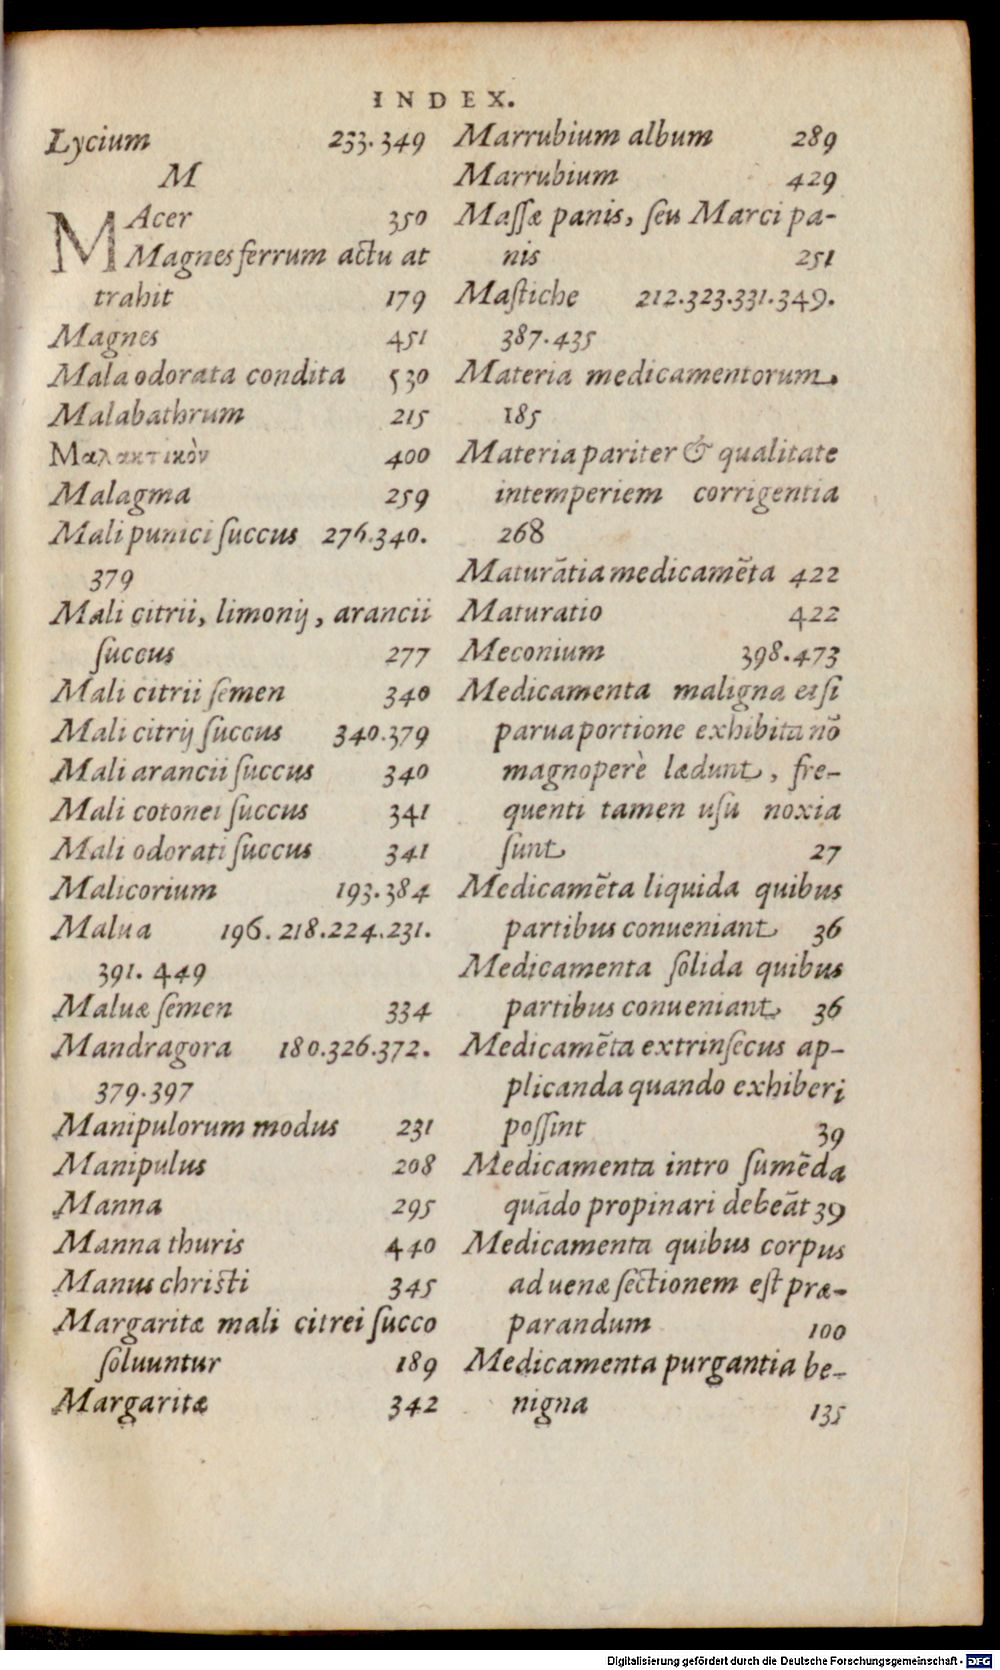 INDEX.
Lycium 233.349
M
MAcer 350
Magnes ferrum actu at
trahit 179
Magnes 451
Mala odorata condita 530
Malabathrum 215
Μαλακτικὸν 400
Malagma 259
Mali punici ſuccus 276.340.
379
Mali citrii, limonij, arancii
ſuccus 277
Mali citrii ſemen 340
Mali citrij ſuccus 340.379
Mali arancii ſuccus 340
Mali cotonei ſuccus 341
Mali odorati ſuccus 341
Malicorium 193.384
Malua 196.218.224.231.
391.449
Maluæ ſemen 334
Mandragora 180.326.372.
379.397
Manipulorum modus 231
Manipulus 208
Manna 295
Manna thuris 440
Manus christi 345
Margaritæ mali citrei ſucco
ſoluuntur 189
Margaritæ 342
Marrubium album 289
Marrubium 429
Maſſæ panis, ſeu Marci pa-
nis 251
Maſtiche 212.323.331.349.
387.435
Materia medicamentorum.
185
Materia pariter & qualitate
intemperiem corrigentia
268
Maturātia medicamēta 422
Maturatio 422
Meconium 398.473
Medicamenta maligna etſi
parua portione exhibita nō
magnoperè lædunt, fre-
quenti tamen uſu noxia
ſunt 27
Medicamēta liquida quibus
partibus conueniant 36
Medicamenta ſolida quibus
partibus conueniant 36
Medicamēta extrinſecus ap-
plicanda quando exhiberi
poſſint 39
Medicamenta intro ſumēda
quādo propinari debeāt 39
Medicamenta quibus corpus
ad uenæ ſectionem eſt præ-
parandum 100
Medicamenta purgantia be-
nigna 135
Digitalisierung gefördert durch die Deutsche Forschungsgemeinschaft - DFG